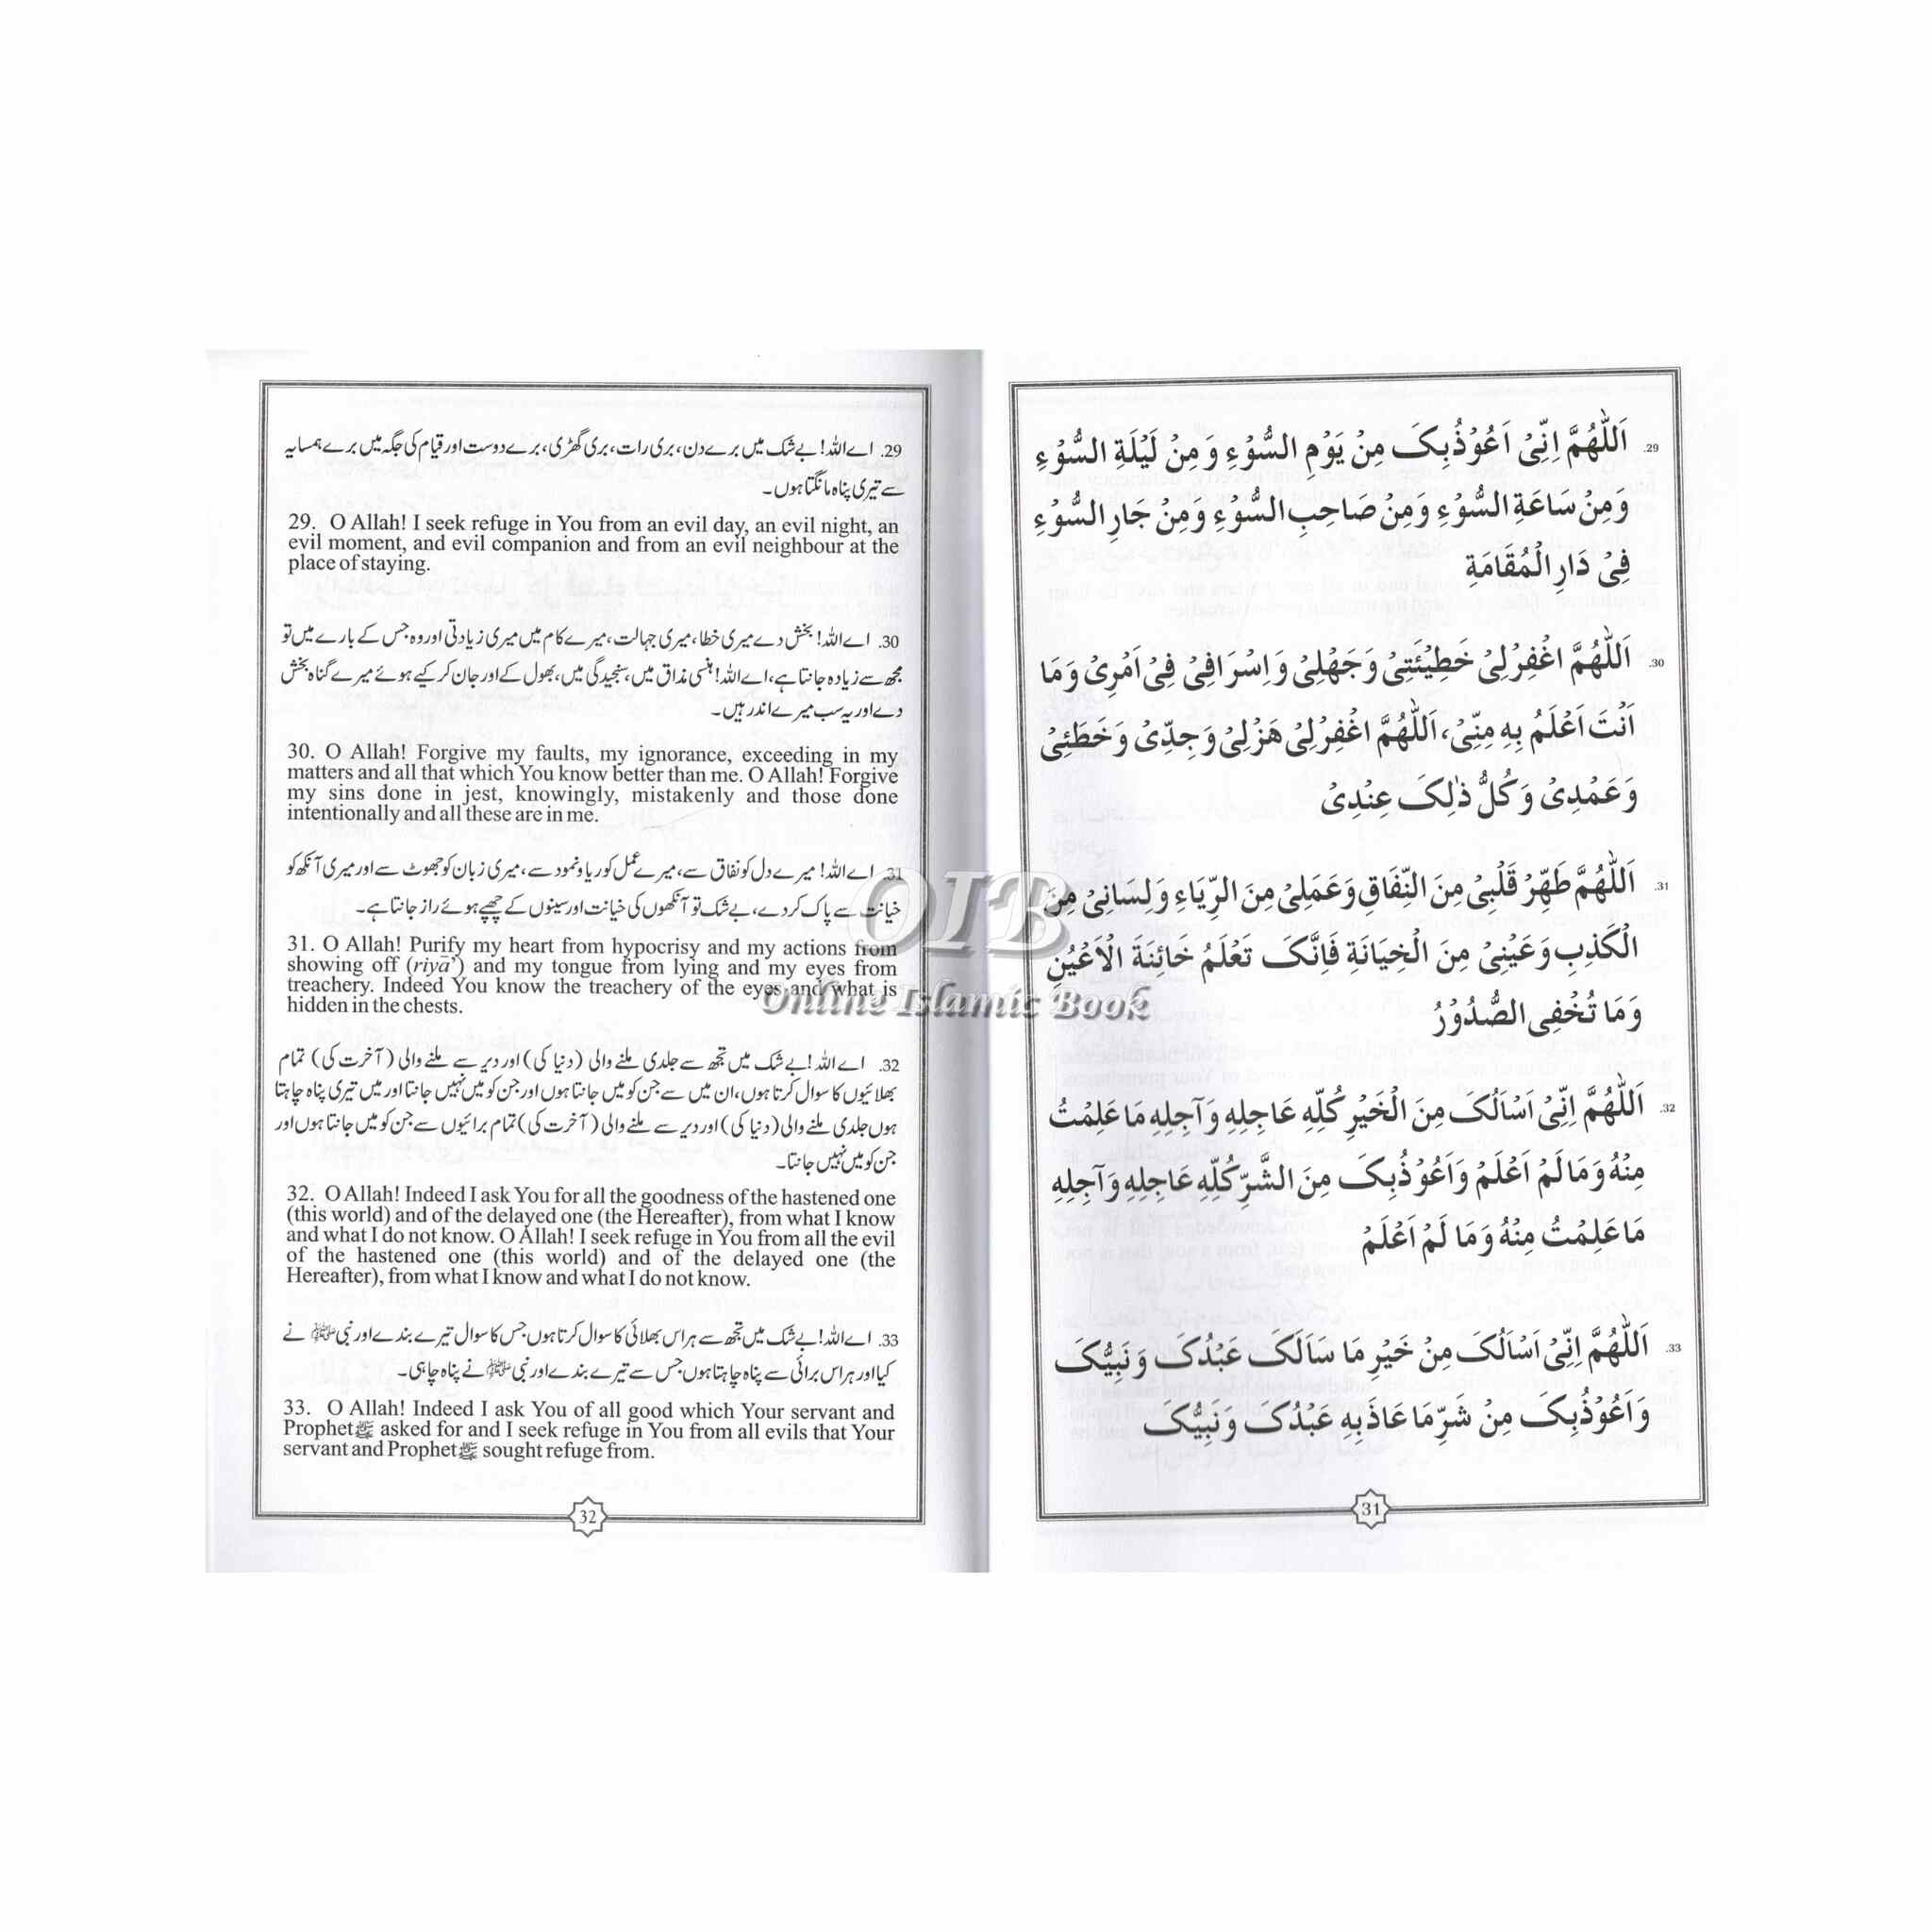 29. اَللّٰهُمَّ اِنِّیْ اَعُوْذُبِکَ مِنْ یَوْمِ السُّوْءِ وَمِنْ لَیْلَةِ السُّوْءِ
وَمِنْ سَاعَةِ السُّوْءِ وَمِنْ صَاحِبِ السُّوْءِ وَمِنْ جَارِ السُّوْءِ
فِیْ دَارِ الْمُقَامَةِ
30. اَللّٰهُمَّ اغْفِرْلِیْ خَطِیْئَتِیْ وَجَهْلِیْ وَاِسْرَافِیْ فِیْ اَمْرِیْ وَمَا
اَنْتَ اَعْلَمُ بِهٖ مِنِّیْ، اَللّٰهُمَّ اغْفِرْلِیْ هَزْلِیْ وَجِدِّیْ وَخَطَئِیْ
وَعَمْدِیْ وَکُلُّ ذٰلِکَ عِنْدِیْ
31. اَللّٰهُمَّ طَهِّرْ قَلْبِیْ مِنَ النِّفَاقِ وَعَمَلِیْ مِنَ الرِّیَاءِ وَلِسَانِیْ مِنَ
الْکَذِبِ وَعَیْنِیْ مِنَ الْخِیَانَةِ فَاِنَّکَ تَعْلَمُ خَائِنَةَ الْاَعْیُنِ
وَمَا تُخْفِی الصُّدُوْرُ
32. اَللّٰهُمَّ اِنِّیْ اَسْاَلُکَ مِنَ الْخَیْرِ کُلِّهٖ عَاجِلِهٖ وَآجِلِهٖ مَا عَلِمْتُ
مِنْهُ وَمَا لَمْ اَعْلَمْ وَاَعُوْذُبِکَ مِنَ الشَّرِّ کُلِّهٖ عَاجِلِهٖ وَآجِلِهٖ
مَا عَلِمْتُ مِنْهُ وَمَا لَمْ اَعْلَمْ
33. اَللّٰهُمَّ اِنِّیْ اَسْاَلُکَ مِنْ خَیْرِ مَا سَاَلَکَ عَبْدُکَ وَنَبِیُّکَ
وَاَعُوْذُبِکَ مِنْ شَرِّ مَا عَاذَ بِهٖ عَبْدُکَ وَنَبِیُّکَ
31
29. اے اللہ! بےشک میں برے دن، بری رات، بری گھڑی، برے دوست اور قیام کی جگہ میں برے ہمسایہ
سے تیری پناہ مانگتا ہوں۔
29. O Allah! I seek refuge in You from an evil day, an evil night, an
evil moment, and evil companion and from an evil neighbour at the
place of staying.
30. اے اللہ! بخش دے میری خطا، میری جہالت، میرے کام میں میری زیادتی اور وہ جس کے بارے میں تو
مجھ سے زیادہ جانتا ہے، اے اللہ! ہنسی مذاق میں، سنجیدگی میں، بھول کے اور جان کر کیے ہوئے میرے گناہ بخش
دے اور یہ سب میرے اندر ہیں۔
30. O Allah! Forgive my faults, my ignorance, exceeding in my
matters and all that which You know better than me. O Allah! Forgive
my sins done in jest, knowingly, mistakenly and those done
intentionally and all these are in me.
31. اے اللہ! میرے دل کو نفاق سے، میرے عمل کو ریا ونمود سے، میری زبان کو جھوٹ سے اور میری آنکھ کو
خیانت سے پاک کر دے، بےشک تو آنکھوں کی خیانت اور سینوں کے چھپے ہوئے راز جانتا ہے۔
31. O Allah! Purify my heart from hypocrisy and my actions from
showing off (riyā’) and my tongue from lying and my eyes from
treachery. Indeed You know the treachery of the eyes and what is
hidden in the chests.
32. اے اللہ! بےشک میں تجھ سے جلدی ملنے والی (دنیا کی) اور دیر سے ملنے والی (آخرت کی) تمام
بھلائیوں کا سوال کرتا ہوں، ان میں سے جن کو میں جانتا ہوں اور جن کو میں نہیں جانتا اور میں تیری پناہ چاہتا
ہوں جلدی ملنے والی (دنیا کی) اور دیر سے ملنے والی (آخرت کی) تمام برائیوں سے جن کو میں جانتا ہوں اور
جن کو میں نہیں جانتا۔
32. O Allah! Indeed I ask You for all the goodness of the hastened one
(this world) and of the delayed one (the Hereafter), from what I know
and what I do not know. O Allah! I seek refuge in You from all the evil
of the hastened one (this world) and of the delayed one (the
Hereafter), from what I know and what I do not know.
33. اے اللہ! بےشک میں تجھ سے ہر اس بھلائی کا سوال کرتا ہوں جس کا سوال تیرے بندے اور نبی ﷺ نے
کیا اور ہر اس برائی سے پناہ چاہتا ہوں جس سے تیرے بندے اور نبی ﷺ نے پناہ چاہی۔
33. O Allah! Indeed I ask You of all good which Your servant and
Prophet ﷺ asked for and I seek refuge in You from all evils that Your
servant and Prophet ﷺ sought refuge from.
32
OIB
Online Islamic Book